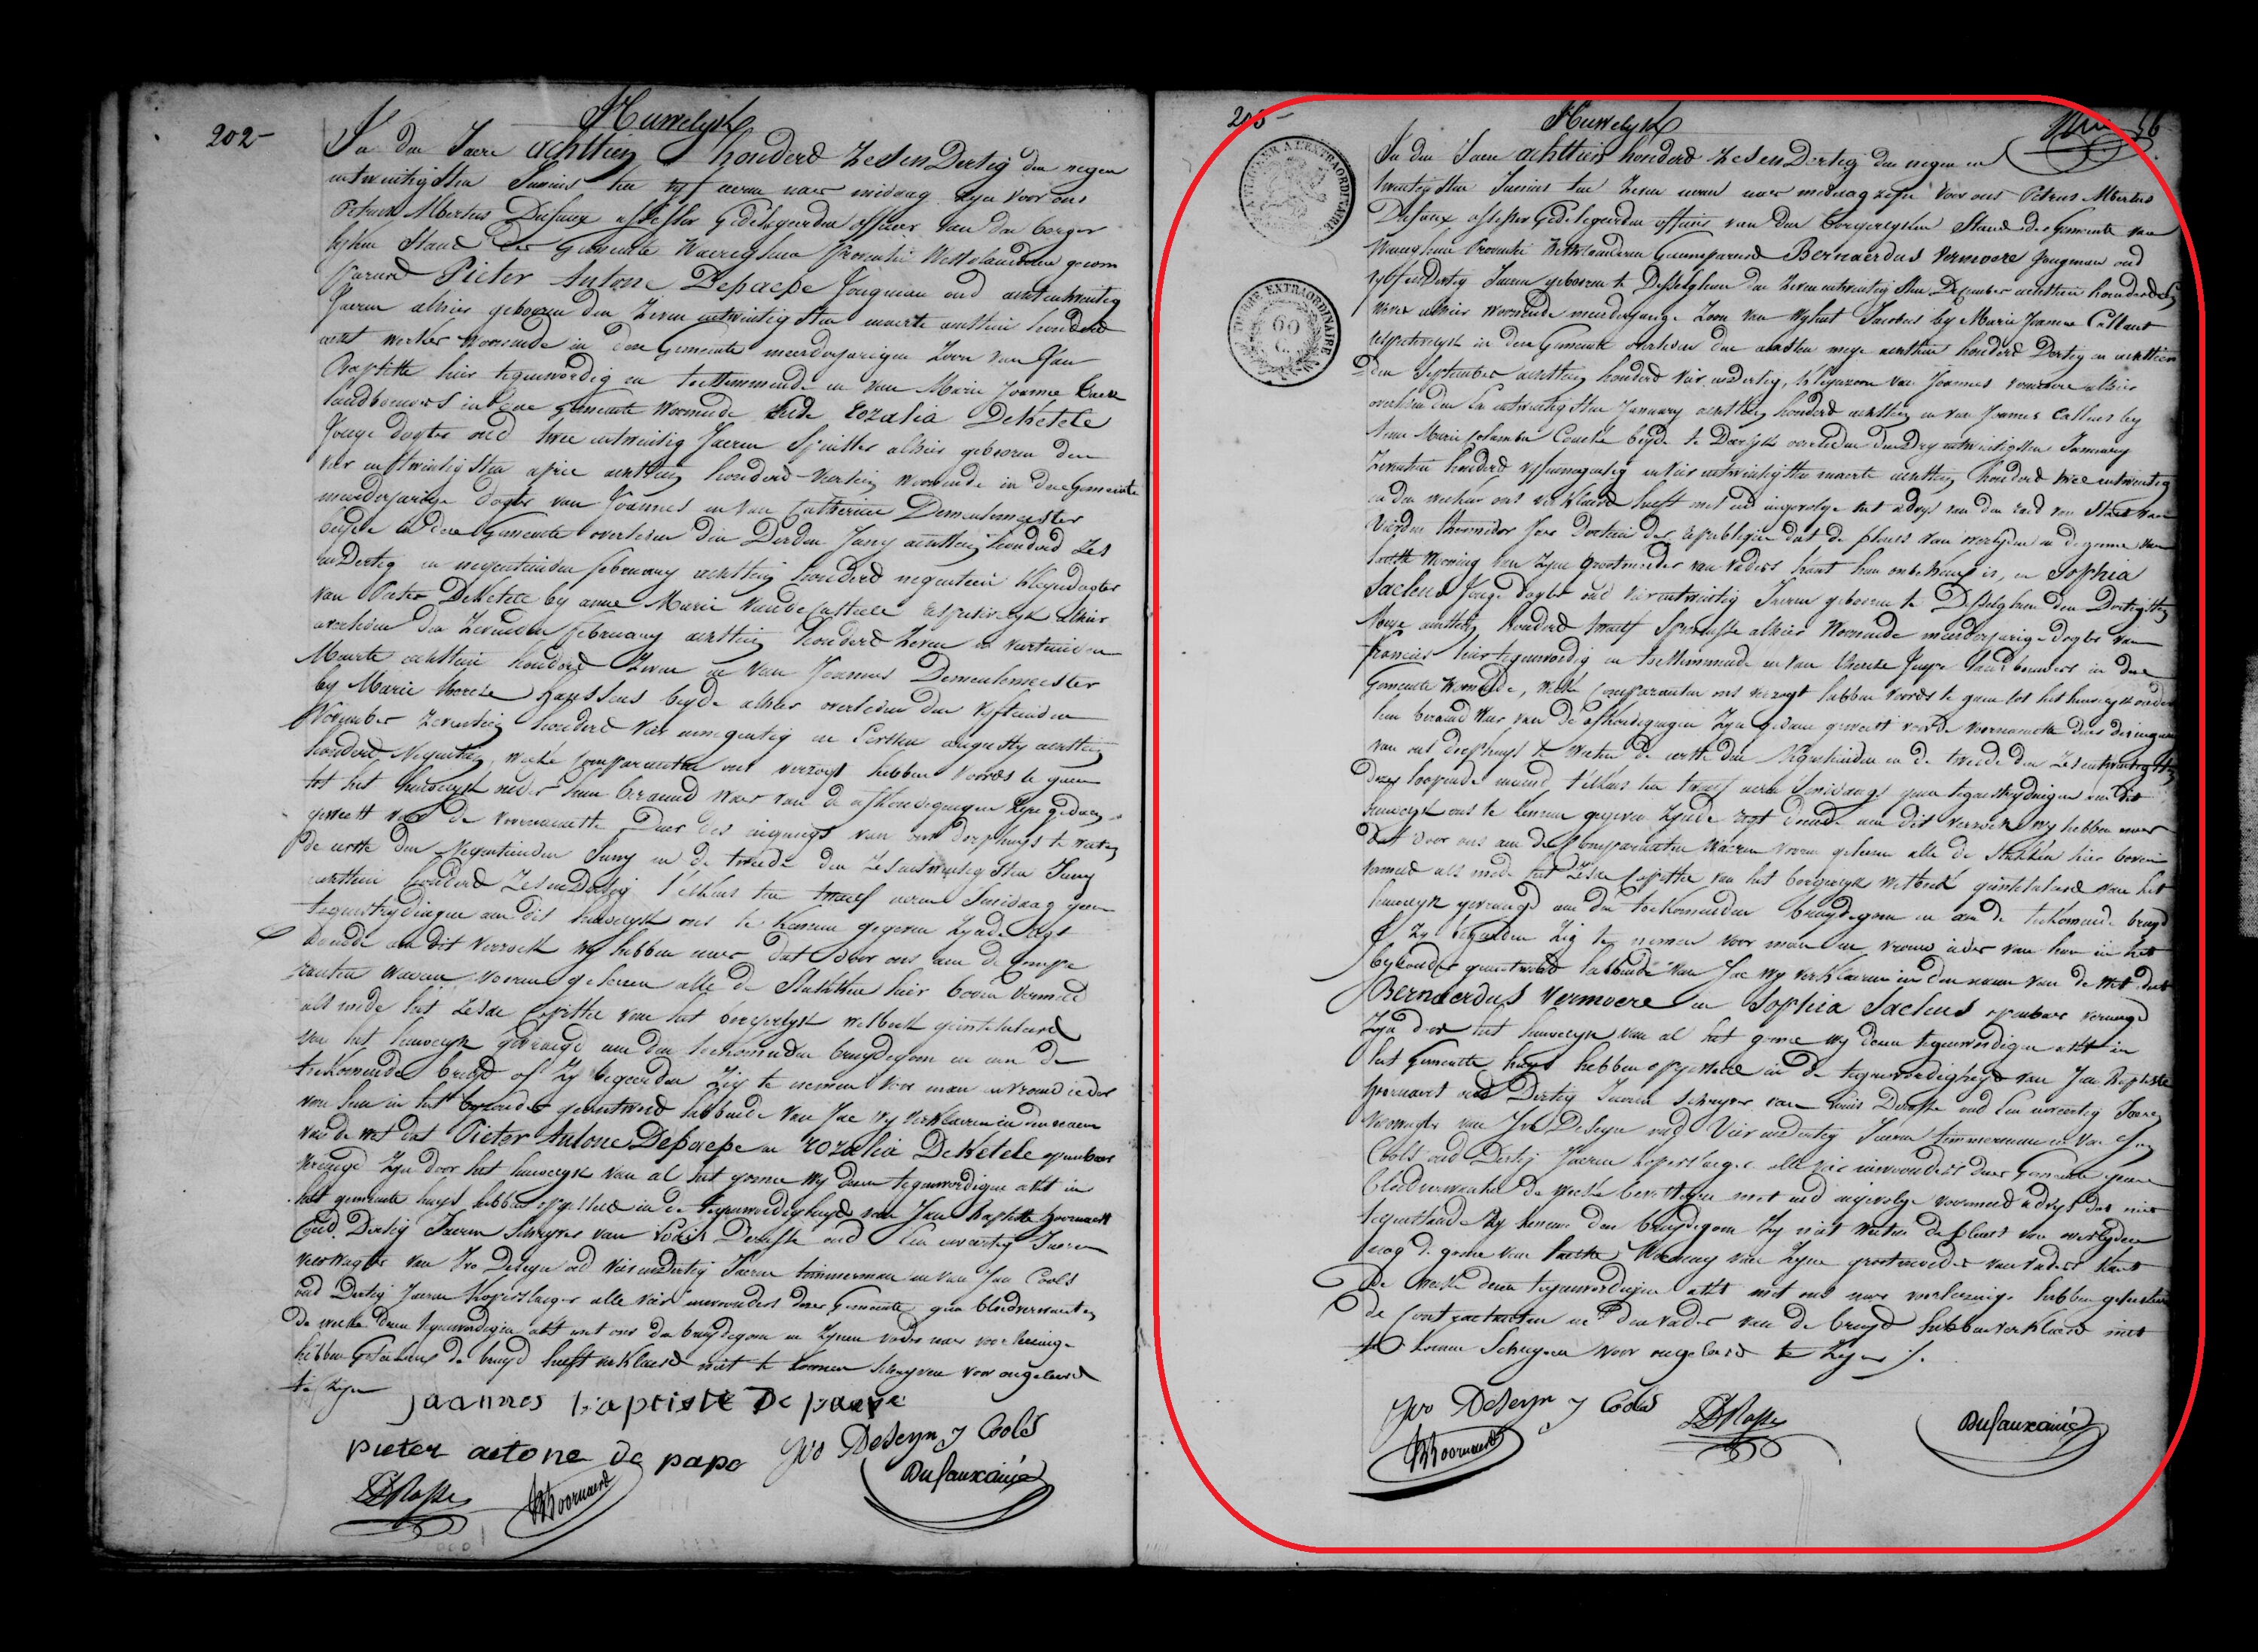 202-
Huwelyk
In den Jaere achttien honderd zesendertig den negen
entwintigsten Junius ten vyf uren naer middag zyn voor ons
Petrus Albertus Dufaux assessor gedelegeerden officier van den borger
lyken stand der Gemeente Waereghem provintie Westvlaenderen gecom
pareerd Pieter Antone Depaepe Jongman oud achtentwintig
Jaeren alhier geboren den zevenentwintigsten maerte achttien honderd
acht werker woonende in deze Gemeente meerderjarigen Zoon van Jan
Baptiste hier tegenwoordig en toestemmende en van Marie Joanne
landbouwers in deze gemeente woonende ende Rozalia DeKetele
Jonge dogter oud twee entwintig Jaeren spinster alhier geboren den
vier entwintigsten april achttien honderd veertien woonende in deze Gemeente
meerderjarige dogter van Joannes en van Catherine Demeulemeester
beyde in deze Gemeente overleden den derden Juny achttien honderd zes
en dertig en negentienden february achttien honderd negentien kleyndogter
van Pieter DeKetele by anne Marie Vandecasteele respectivelyk alhier
overleden den zevenden february achttien honderd zeven en veertienden
Maerte achttien honderd zeven en van Joannes Demeulemeester
by Marie Therese beyde alhier overleden den vyftienden
November zeventien honderd vier ennegentig en eersten augusty achttien
honderd Negentien, welke Comparanten ons verzogt hebben voords te gaen
tot het huwelyk onder hun beraemd waer van de afkondigingen zyn gedaen
geweest voor de voornaemste Deur des ingangs van ons dorphuys te weten
de eerste den Negentienden Juny en de tweede den zesentwintigsten Juny
achttien honderd zesendertig t'elkens ten twaelf uren Smiddag geen
tegenstrydingen aen dit huwelyk ons te kennen gegeven zynde regt
doende aen dit verzoek wy hebben naer dat door ons aen de Compa
ranten waeren vooren gelezen alle de stukken hier boven vermeld
als mede het zesde Capittel van het borgerlyk wetboek geintituleerd
van het huwelyk gevraegd aen den toekomenden bruydegom en aen de
toekomende bruyd of zy begeerden zig te nemen voor man en vrouw ieder
van hun in het byzonder geantwoord hebbende van Jae wy verklaeren in den naem
van de wet dat Pieter Antone Depaepe en Rozalia DeKetele openbaer
vereenigd zyn door het huwelyk van al het gonne wy dezen tegenwoordigen akt in
het gemeente huys hebben opgesteld in de tegenwoordigheyd van Jan Baptiste Hoornaert
oud Dertig Jaeren Schryver van Louis Derasse oud Een enveertig Jaeren
veldwagter van Ivo Deseyn oud vier endertig Jaeren timmerman en van Jan Cools
oud Dertig Jaeren koperslaeger alle vier inwoonders dezer Gemeente geen bloedverwanten
de welke dezen tegenwoordigen akt met ons den bruydegom en zynen vader naer voorlezinge
hebben geteekend de bruyd heeft verklaerd niet te konnen schryven voor ongeleerd
te zyn
Joannes baptiste De paepe
pieter antone de pape Ivo Deseyn J Cools
LDRasse JBHoornaerd Dufauxainé
203-
Huwelyk
56
A TIMBRER A L'EXTRAORDINAIRE
TIMBRE EXTRAORDINAIRE
60
C.
In den Jaere achttien honderd zesendertig den negen en
twintigsten Junius ten zeven uren naer middag zyn voor ons Petrus Albertus
Dufaux assessor Gedelegeerden officier van den borgerlyken Stand der Gemeente van
Waereghem Provintie Westvlaenderen Gecompareerd Bernaerdus Vermoere Jongman oud
vyfendertig Jaeren geboren te Desselghem den zevenentwintigsten December achttien honderd
alhier woonende meerderjarige Zoon van wylent Jacobus by Marie Joanne Callant
respectivelyk in deze Gemeente overleden den achtsten meye achttien honderd Dertig en achttien
den September achttien honderd vier endertig, kleynzoon van Joannes vermoere alhier
overleden den Een entwintigsten January achttien honderd achttien en van Joannes Callant by
Anne Marie Colombe beyde te Deerlyk overleden den Dry entwintigsten January
Zeventien honderd vyfennegentig en vier entwintigsten maerte achttien honderd twee entwintig
en den welken ons verklaerd heeft met eed ingevolge het advys van den raed van Staet van
vierden thermidor Jaer Dertien der republique dat de plaets van overlyden en degonne van
laetste Wooning van zyne grootmoeder van vaders kant hem onbekend is, en Sophia
Saelens Jonge dogter oud vier entwintig Jaeren geboren te Desselghem den Dertigsten
Meye achttien honderd twaelf alhier Woonende meerderjarige dogter van
Francies hier tegenwoordig en toestemmende en van Therese landbouwers in deze
Gemeente Woonende, welke Comparanten ons verzogt hebben voords te gaen tot het huwelyk onder
hun beraemd waer van de afkondigingen zyn gedaen geweest voor de voornaemste deur des ingangs
van ons dorphuys te weten de eerste den Negentienden en de tweede den zesentwintigsten
dezer loopende maend, t'elkens ten twaelf uren Smiddags geen tegenstrydingen aen dit
huwelyk ons te kennen gegeven zynde regt doende aen dit verzoek wy hebben naer
dat door ons aen de Comparanten waeren vooren gelezen alle de stukken hier boven
vermeld als mede het zesde Capittel van het borgerlyk wetboek geintituleerd van het
huwelyk gevraegd aen den toekomenden bruydegom en aen de toekomende bruyd
of zy begeerden zig te nemen voor man en vrouw ieder van hun in het
byzonder geantwoord hebbende van Jae wy verklaeren in den naem van de wet dat
Bernaerdus Vermoere en Sophia Saelens openbaer vereenigd
zyn door het huwelyk van al het gonne wy dezen tegenwoordigen akt in
het Gemeente huys hebben opgesteld in de tegenwoordigheyd van Jan Baptiste
Hoornaert oud Dertig Jaeren schryver van Louis Derasse oud Een enveertig Jaeren
veldwagter van Ivo Deseyn oud Vier endertig Jaeren timmerman en van Jan
Cools oud Dertig Jaeren koperslaeger alle vier inwoonders dezer Gemeente geene
bloedverwanten de welke bevestigen met eed ingevolge voormeld advys dat niet
tegenstaende zy kennen den bruydegom zy niet weten de plaets van overlyden
nog de gonne van laetste Wooning van zyne grootmoeder van vaders kant
De welke dezen tegenwoordigen akt met ons naer voorlezinge hebben geteekend
De Contractanten en den vader van de bruyd hebben verklaerd niet
te konnen Schryven voor ongeleerd te zyn ./.
Ivo Deseyn J Cools LDRasse Dufauxainé
JBHoornaerd